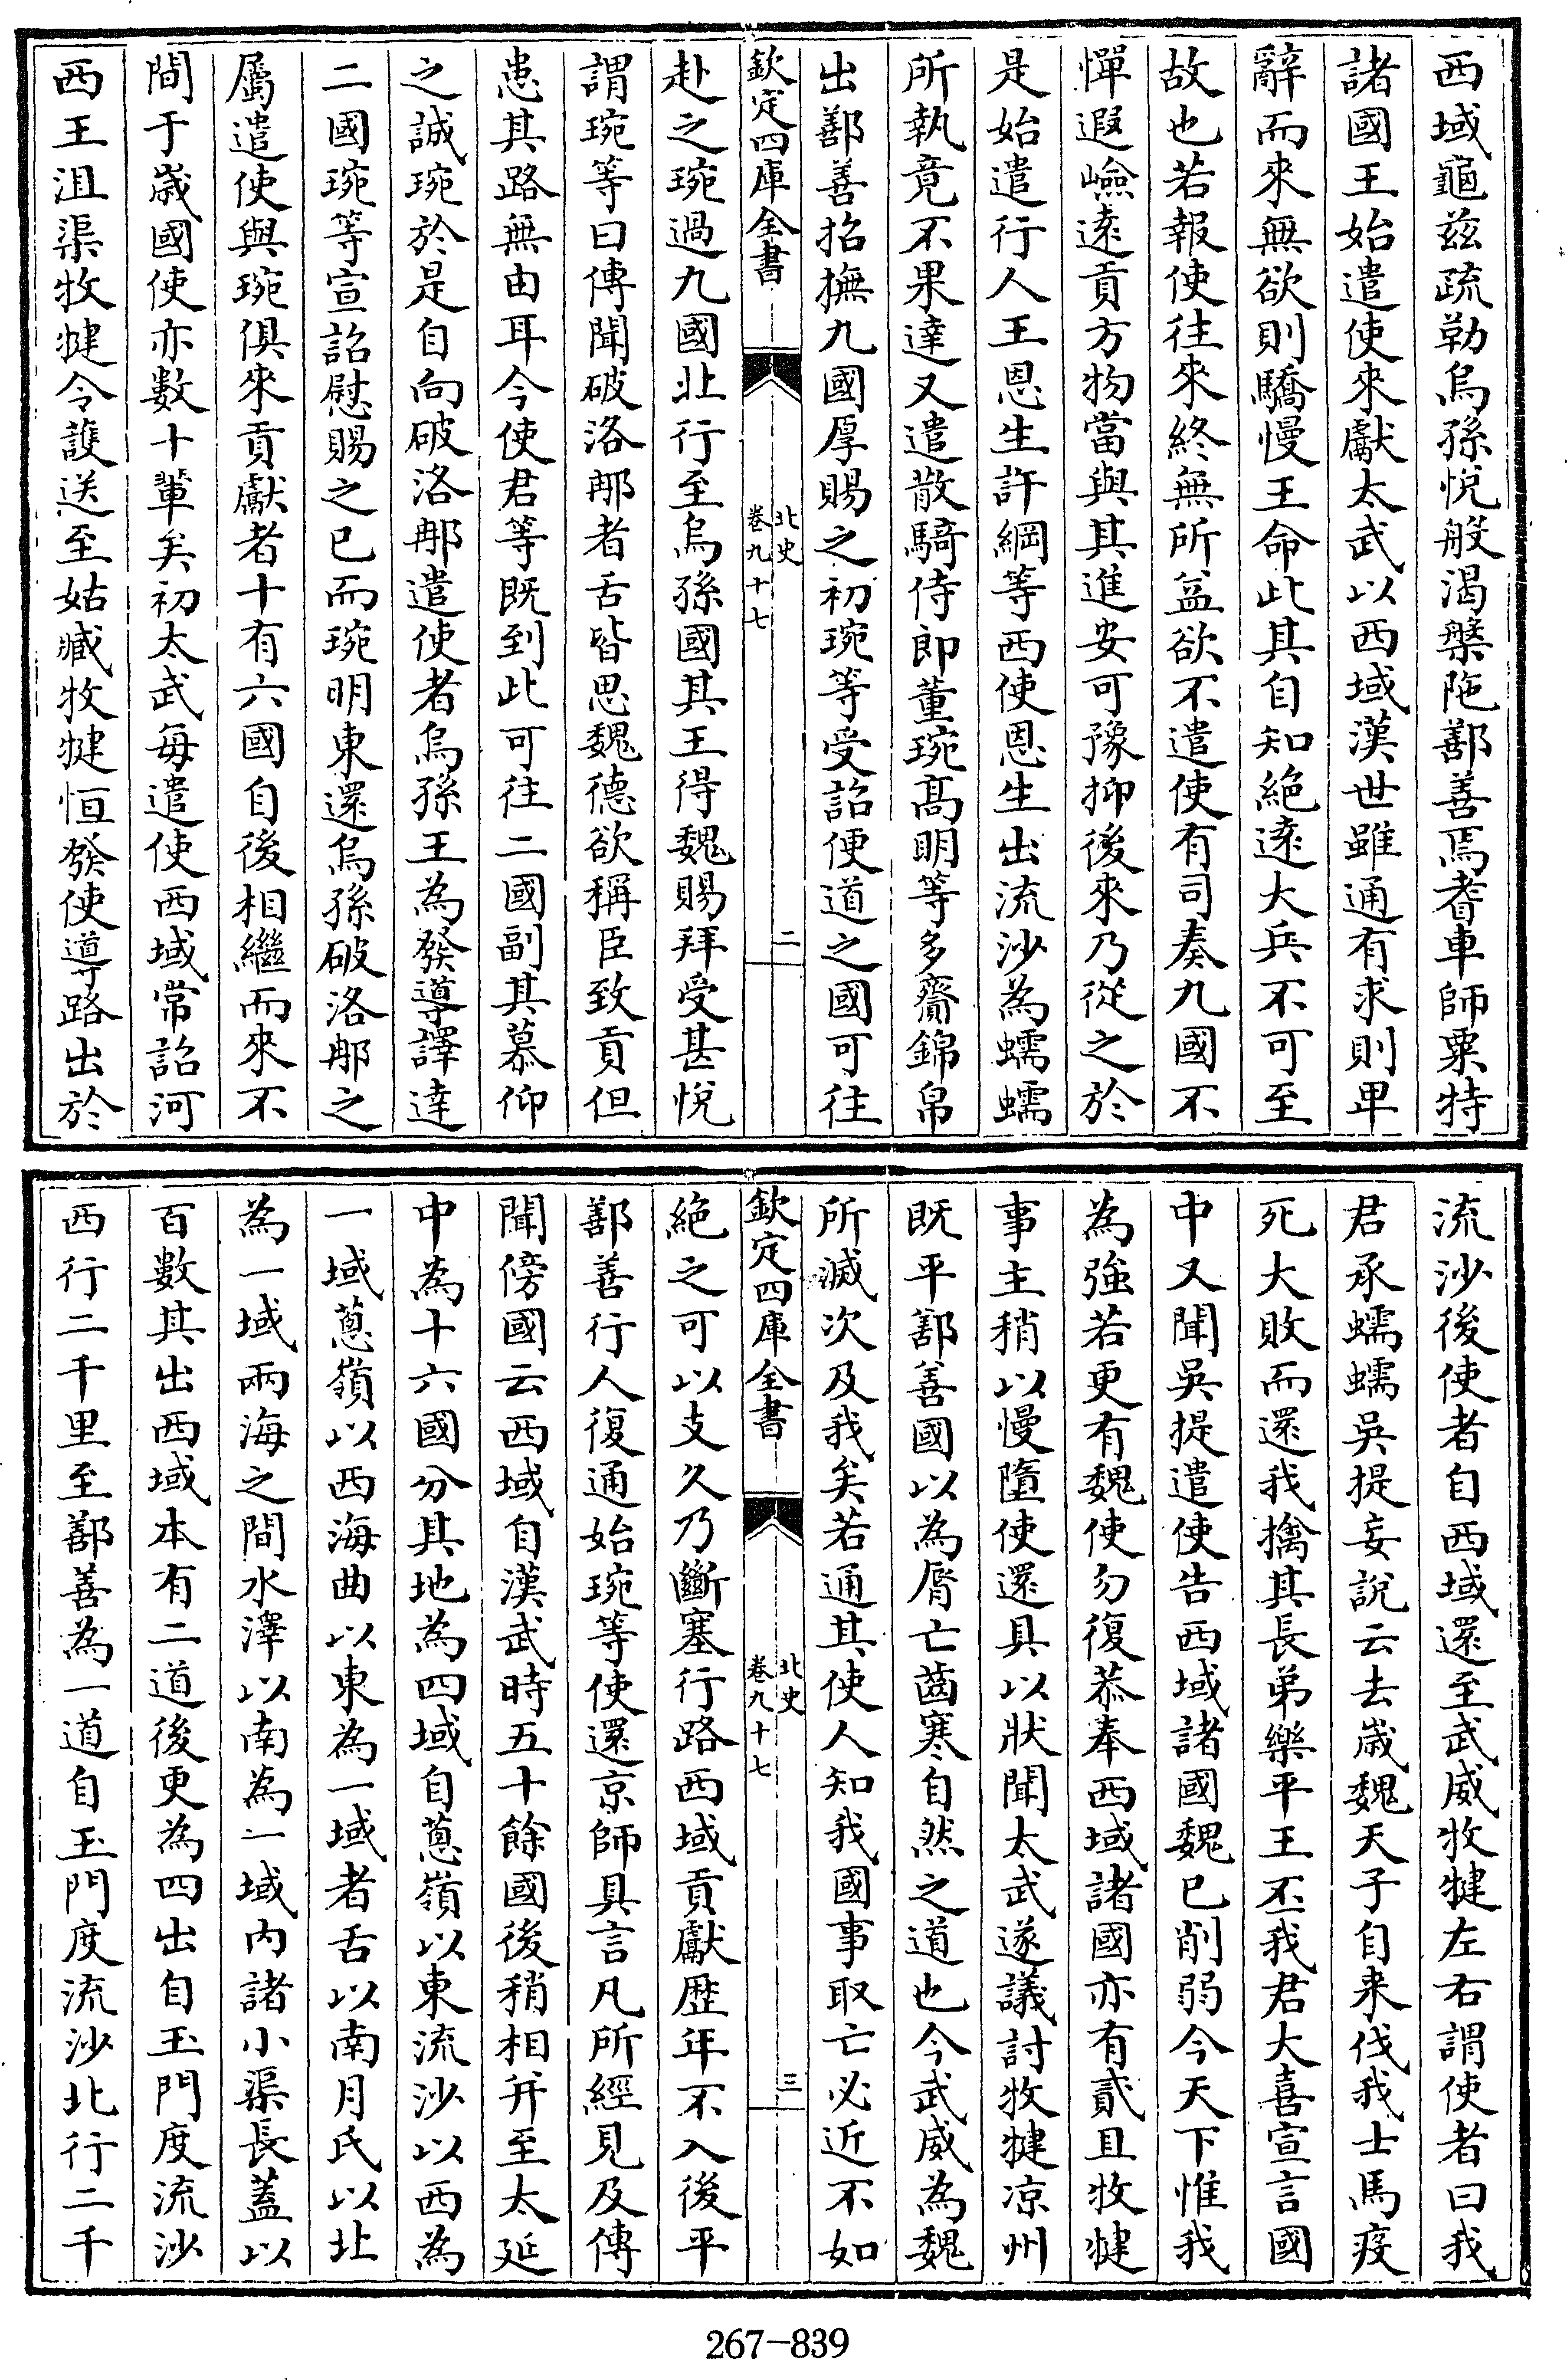 西域龜兹疏勒烏孫悦般渴槃陁鄯善焉耆車師粟特
諸國王始遣使來獻太武以西域漢世雖通有求則卑
辭而來無欲則驕慢王命此其自知絶逺大兵不可至
故也若報使往來終無所益欲不遣使有司奏九國不
憚遐嶮逺貢方物當與其進安可豫抑後來乃從之於
是始遣行人王恩生許綱等西使恩生出流沙為蠕蠕
所執竟不果達又遣散騎侍郎董琬髙明等多齎錦帛
出鄯善招撫九國厚賜之初琬等受詔便道之國可往
欽定四庫全書
北史
卷九十七
二
赴之琬過九國北行至烏孫國其王得魏賜拜受甚悦
謂琬等曰傳聞破洛那者舌皆思魏德欲稱臣致貢但
患其路無由耳今使君等既到此可往二國副其慕仰
之誠琬於是自向破洛那遣使者烏孫王為發導譯達
二國琬等宣詔慰賜之已而琬明東還烏孫破洛那之
屬遣使與琬俱來貢獻者十有六國自後相繼而來不
間于歲國使亦數十輩矣初太武每遣使西域常詔河
西王沮渠牧犍令護送至姑臧牧犍恒發使導路出於
流沙後使者自西域還至武威牧犍左右謂使者曰我
君承蠕蠕吳提妄說云去歲魏天子自来伐我士馬疫
死大敗而還我擒其長弟樂平王丕我君大喜宣言國
中又聞吳提遣使告西域諸國魏已削弱今天下惟我
為強若更有魏使勿復恭奉西域諸國亦有貳且牧犍
事主稍以慢墮使還具以狀聞太武遂議討牧犍凉州
既平鄯善國以為脣亡齒寒自然之道也今武威為魏
所滅次及我矣若通其使人知我國事取亡必近不如
欽定四庫全書
北史
卷九十七
三
絶之可以支久乃斷塞行路西域貢獻歷年不入後平
鄯善行人復通始琬等使還京師具言凡所經見及傳
聞傍國云西域自漢武時五十餘國後稍相并至太延
中為十六國分其地為四域自蔥嶺以東流沙以西為
一域蔥嶺以西海曲以東為一域者舌以南月氏以北
為一域兩海之間水澤以南為一域内諸小渠長蓋以
百數其出西域本有二道後更為四出自玉門度流沙
西行二千里至鄯善為一道自玉門度流沙北行二千
267-839